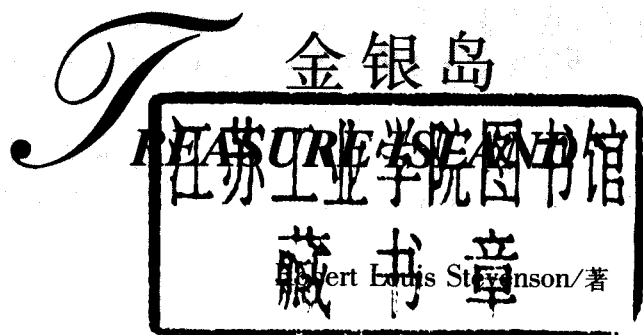 金银岛
TREASURE ISLAND
江苏工业学院图书馆
藏书章
Robert Louis Stevenson/著